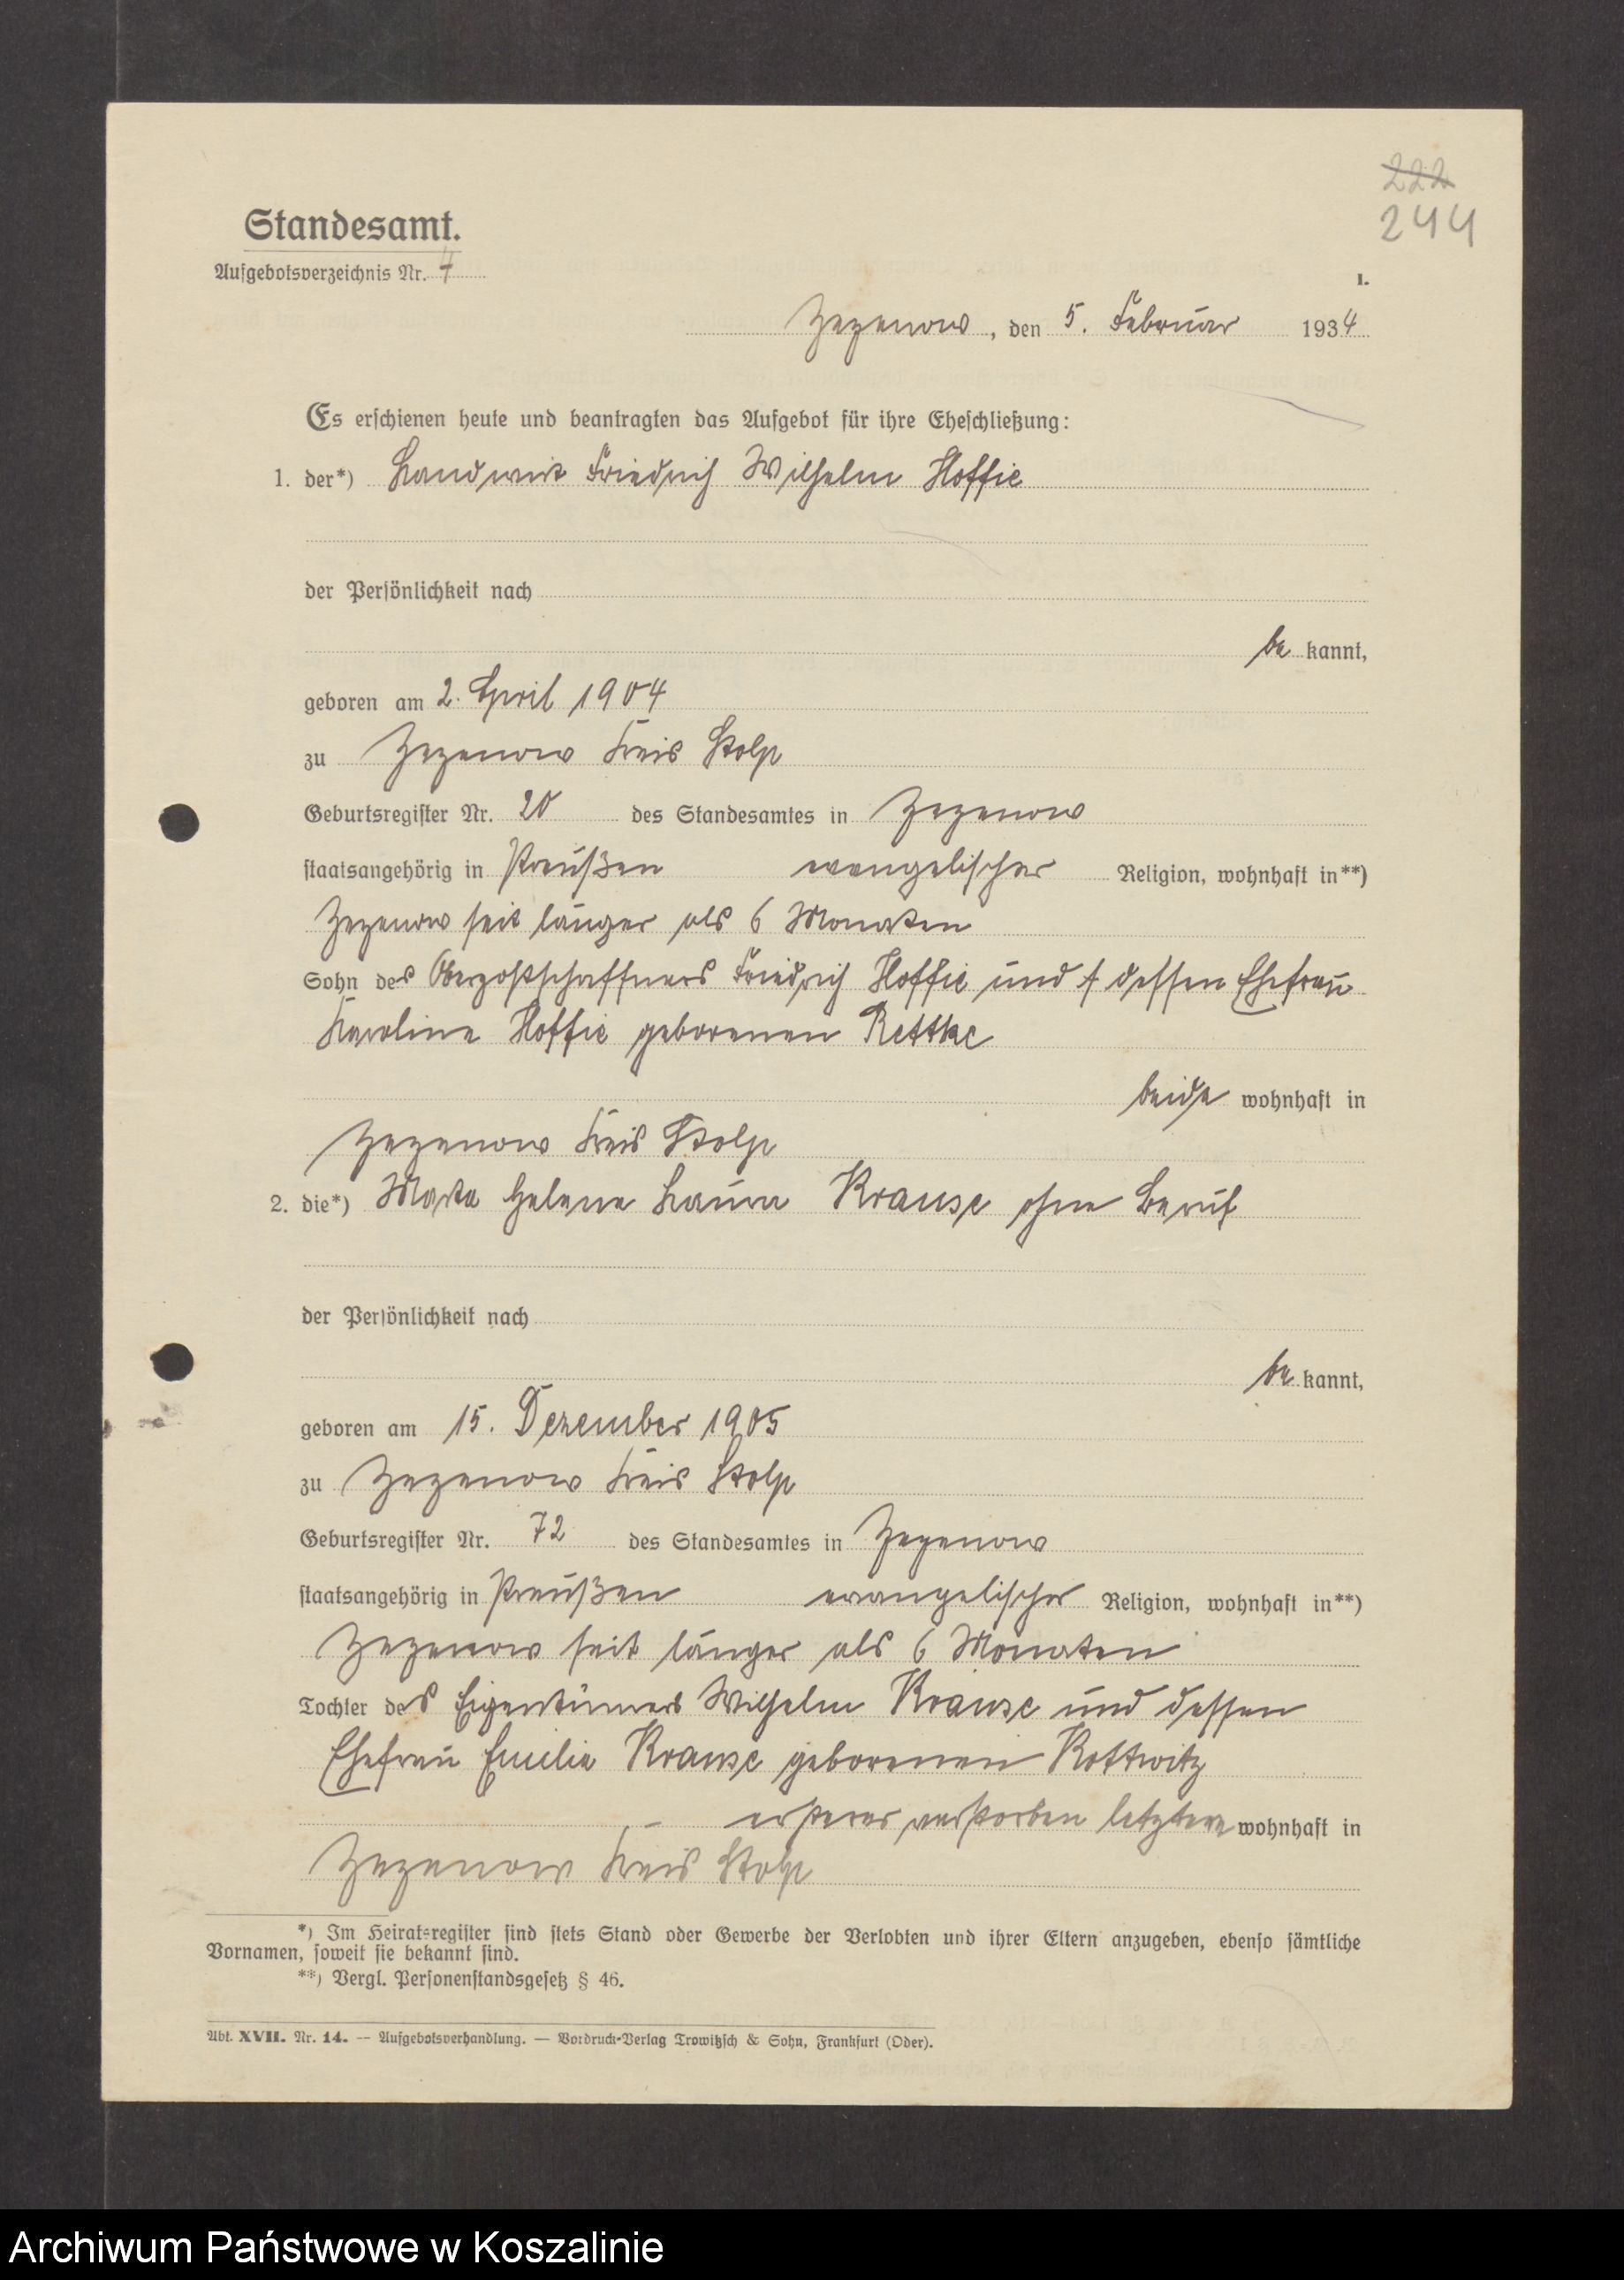 222
244
Standesamt.
Aufgebotsverzeichnis Nr. 4
1.
Zezenow, den 5. Februar 1934
Es erschienen heute und beantragten das Aufgebot für ihre Eheschließung:
1. der*) Landwirt Friedrich Wilhelm Hoffie
der Persönlichkeit nach
be kannt,
geboren am 2. April 1904
zu Zezenow Kreis Stolp
Geburtsregister Nr. 20 des Standesamtes in Zezenow
staatsangehörig in Preußen evangelischer Religion, wohnhaft in**)
Zezenow seit länger als 6 Monaten
Sohn des Oberpostschaffners Friedrich Hoffie und dessen Ehefrau
Karoline Hoffie geborenen Rettke
beide wohnhaft in
Zezenow Kreis Stolp
2. die*) Marta Helene Laura Krause ohne Beruf
der Persönlichkeit nach
be kannt,
geboren am 15. Dezember 1905
zu Zezenow Kreis Stolp
Geburtsregister Nr. 72 des Standesamtes in Zezenow
staatsangehörig in Preußen evangelischer Religion, wohnhaft in**)
Zezenow seit länger als 6 Monaten
Tochter des Eigentümers Wilhelm Krause und dessen
Ehefrau Emilie Krause geborenen Kottwitz
ersterer verstorben letztere wohnhaft in
Zezenow Kreis Stolp
*) Im Heiratsregister sind stets Stand oder Gewerbe der Verlobten und ihrer Eltern anzugeben, ebenso sämtliche
Vornamen, soweit sie bekannt sind.
**) Vergl. Personenstandsgesetz § 46.
Abt. XVII. Nr. 14. — Aufgebotsverhandlung. — Vordruck-Verlag Trowitzsch & Sohn, Frankfurt (Oder).
Archiwum Państwowe w Koszalinie